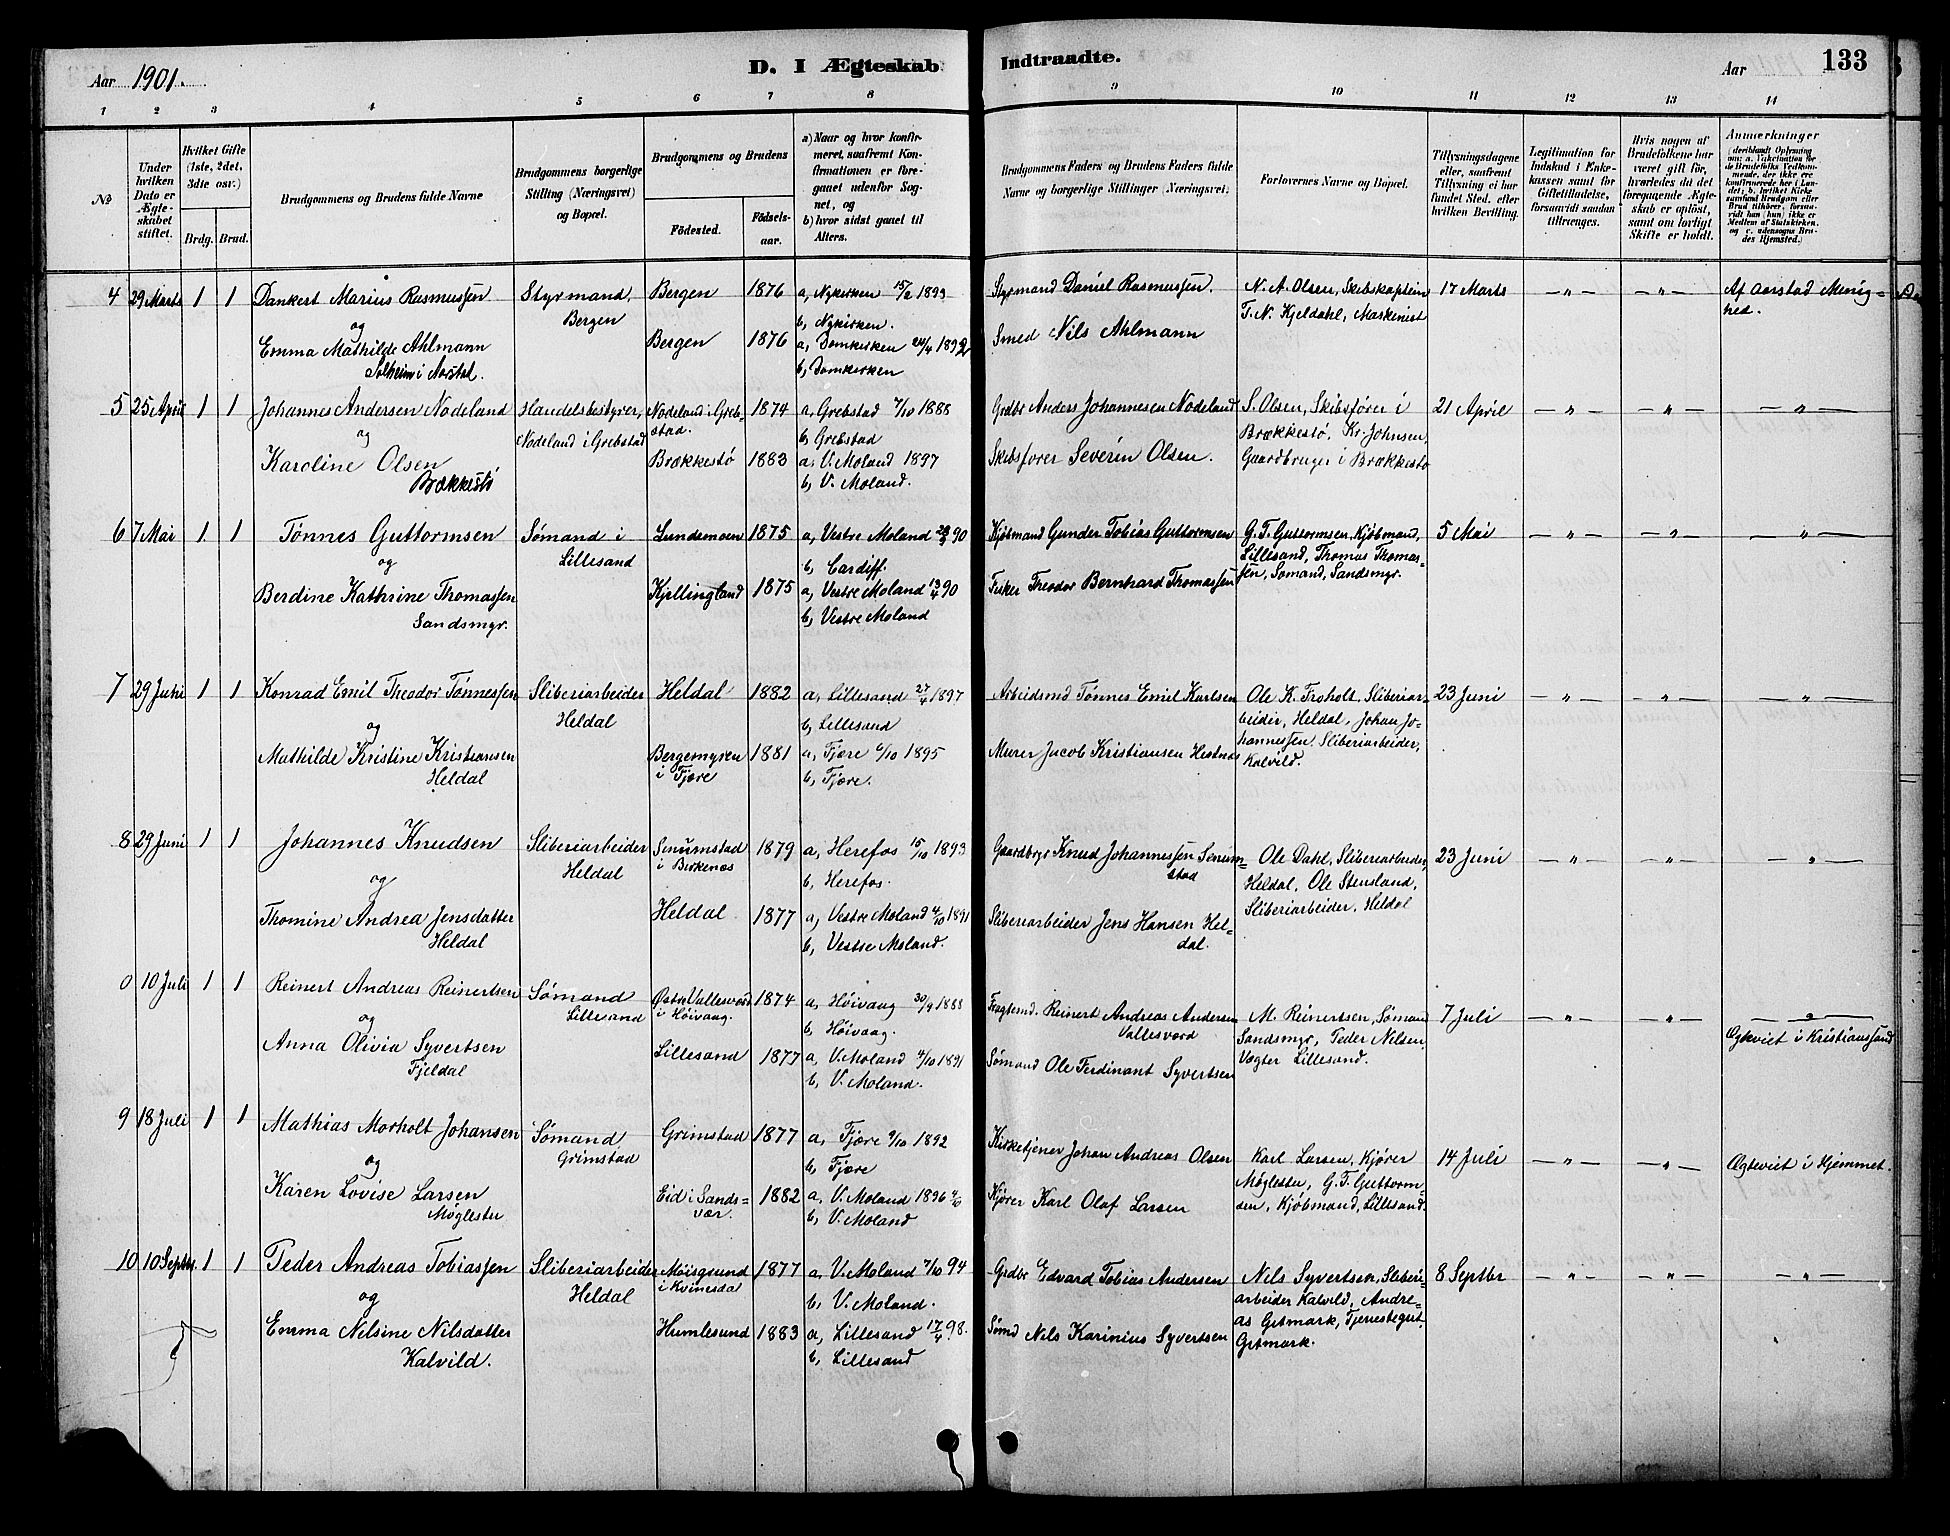 Aar 1901. D. I Ægteskab Indtraadte. Aar 133
1 2 3 4 5 6 7 8 9 10 11 12 13 14
No
Under hvilken Dato er Ægteskabet stiftet.
Hvilket Gifte (1ste, 2det, 3die osv.)
Brdg. Brud.
Brudgommens og Brudens fulde Navne
Brudgommens borgerlige Stilling (Næringsvei) og Bopæl.
Brudgommens og Brudens
Födested. Födsels-aar.
a) Naar og hvor konfirmeret, saafremt Konfirmationen er foregaaet udenfor Sognet, og
b) hvor sidst gaaet til Alters.
Brudgommens Faders og Brudens Faders fulde Navne og borgerlige Stillinger (Næringsvei).
Forlovernes Navne og Bopæl.
Tillysningsdagene eller, saafremt Tillysning ei har fundet Sted, efter hvilken Bevilling.
Legitimation for Indskud i Enkekassen samt for Giftetilladelse, forsaavidt saadan tiltrænges.
Hvis nogen af Brudefolkene har været gift før, hvorledes da det foregaaende Ægteskab er oplöst, samt om lovligt Skifte er holdt.
Anmærkninger
4 29 Marts 1 1 Dankert Marius Rusmussen Styrmand, Bergen 1876 a, Nykirken 15/2 1893 Styrmand Daniel Rasmussen. N. A. Olsen, Skibskaptein 17 Marts — „ — — „ — Af Aarstad Menig=
og Bergen b, Nykirken. T. N. Kjeldahl, Maskenist hed.
Emma Mathilde Ahlmann Bergen 1876 a, Domkirken 24/4 1892 Smed Nils Ahlmann
Solheim i Aarstad. b, Domkirken
5 25 April 1 1 Johannes Andersen Nodeland Handelsbestyrer, Nodeland i Greb= 1874 a, Grebstad 7/10 1888 Grdbr Anders Johannesen Nodeland S. Olsen, Skibsfører i 21 April — „ — — „ — — „ —
og Nodeland i Grebstad stad. b, Grebstad Brækkestø, Kr. Johnsen,
Karoline Olsen Brækkestø 1883 a, V. Moland 1897 Skibsfører Severin Olsen. Gaardbruger i Brækkestø
Brækkestø b, V. Moland.
6 7 Mai 1 1 Tønnes Guttormsen Sømand i Lundemoen 1875 a, Vestre Moland 90 Kjøbmand Gunder Tobias Guttormsen G. T. Guttormsen, Kjøbmand, 5 Mai — „ — — „ — — „ —
og Lillesand b, Cardiff. Lillesand, Thomas Thomas=
Berdine Kathrine Thomassen Kjellingland 1875 a, Vestre Moland 13/4 90 Fisker Theodor Bernhard Thomassen sen, Sømand, Sandsmyr.
Sandsmyr. b, Vestre Moland
7 29 Juni 1 1 Konrad Emil Theodor Tønnessen Sliberiarbeider Heldal 1882 a, Lillesand 27/4 1897 Arbeidsmd Tønnes Emil Karlsen Ole K. Froholt, Sliberiar= 23 Juni — „ — — „ — — „ —
og Heldal b, Lillesand beider, Heldal, Johan Jo=
Mathilde Kristine Kristiansen Bergemyren 1881 a, Fjære 6/10 1895 Murer Jacob Kristiansen Hestnes hannessen, Sliberiarbeider,
Heldal i Fjære b, Fjære. Kalvild.
8 29 Juni 1 1 Johannes Knudsen Sliberiarbeider Senumstad 1879 a, Herefos 15/10 1893 Gaardbrgr Knud Johannessen Senum= Ole Dahl, Sliberiarbeider, 23 Juni — „ — — „ — — „ —
og Heldal i Birkenes b, Herefos. stad Heldal, Ole Stensland,
Thomine Andrea Jensdatter Heldal 1877 a, Vestre Moland 4/10 1891 Sliberiarbeider Jens Hansen Hel= Sliberiarbeider, Heldal
Heldal b, Vestre Moland. dal.
0 10 Juli 1 1 Reinert Andreas Reinertsen Sømand Østre Vallesverd 1874 a, Høivaag 30/9 1888 Fragtemd. Reinert Andreas Andersen M. Reinertsen, Sømand 7 Juli — „ — — „ — — „ —
og Lillesand i Høivaag. b, Høivaag. Vallesverd Sandsmyr, Peder Nilsen, Ægteviet i Kristianssand
Anna Olivia Syvertsen Lillesand 1877 a, V. Moland 4/10 1891 Sømand Ole Ferdinant Syvertsen Vægter Lillesand.
Fjeldal b, V. Moland.
9 18 Juli 1 1 Mathias Morholt Johansen Sømand Grimstad 1877 a, Fjære 9/10 1892 Kirketjener Johan Andreas Olsen Karl Larsen, Kjører 14 Juli — „ — — „ — Ægteviet i Hjemmet.
og Grimstad b, Fjære Møglestu, G. T. Guttorm=
Karen Lovise Larsen Eid i Sands= 1882 a, V. Moland 1896 Kjører Karl Olaf Larsen sen, Kjøbmand, Lillesand.
Møglestu vær. b, V. Moland
10 10 Septbr. 1 1 Peder Andreas Tobiassen Sliberiarbeider Moisgrund 1877 a, V. Moland 7/10 94 Grdbr Edvard Tobias Andersen Nels Syvertsen, Sliberi= 8 Septbr — „ — — „ — — „ —
og Heldal i Kvinesdal b, V. Moland. arbeider Kalvild, Andre=
Emma Nelsine Nilsdatter Humlesund 1883 a, Lillesand 17/4 98. Sømd Nils Karinius Syvertsen as Gitmark, Tjenestegut,
Kalvild. b, Lillesand Gitmark.